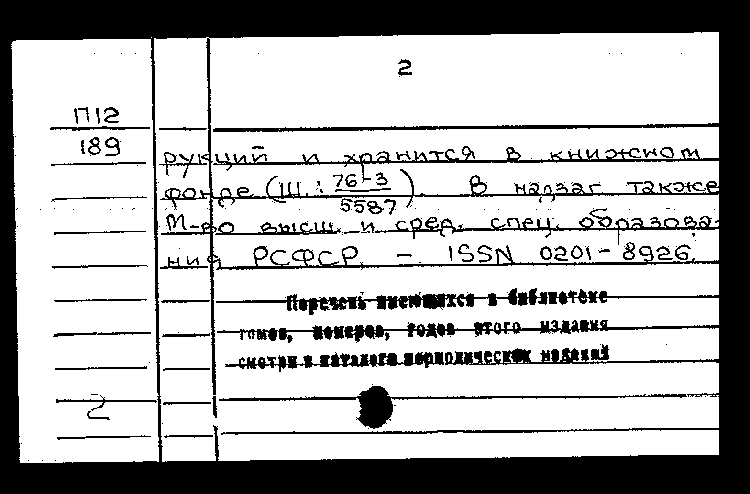 2
П12
189
рукций и хранится в книжном
фонде (Ш.: 76-3/5587). В надзаг. также
М-во высш. и сред. спец. образова-
ния РСФСР. – ISSN 0201-8926.
Перечень имеющихся в библиотеке
томов, номеров, годов этого издания
смотри в каталоге периодических изданий
2